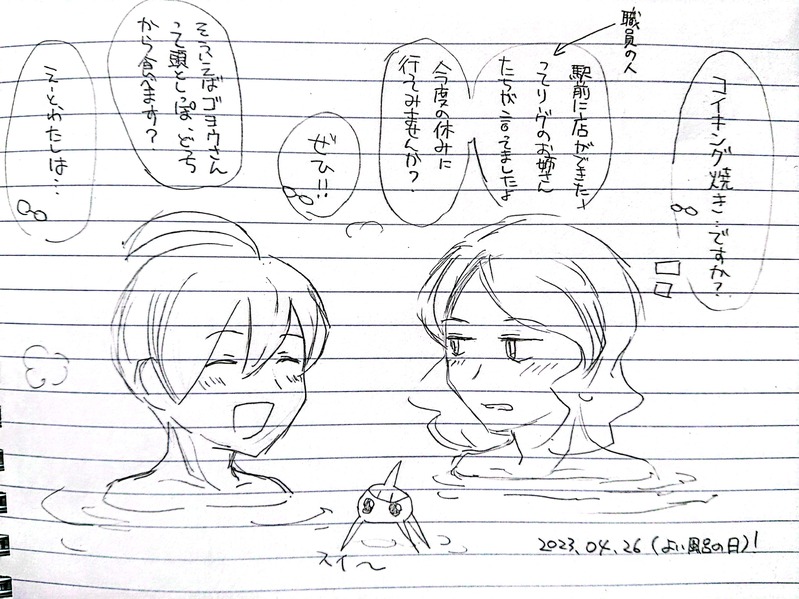 コイキング焼き…ですか?
職員の人
駅前に店ができた
ってリーグのお姉さん
たちが言ってましたよ
今度の休みに
行ってみませんか?
ぜひ!!
そういえばゴヨウさん
って頭としっぽ、どっち
から食べます?
えーと、わたしは…
スイ〜
2023.04.26(よい風呂の日)!